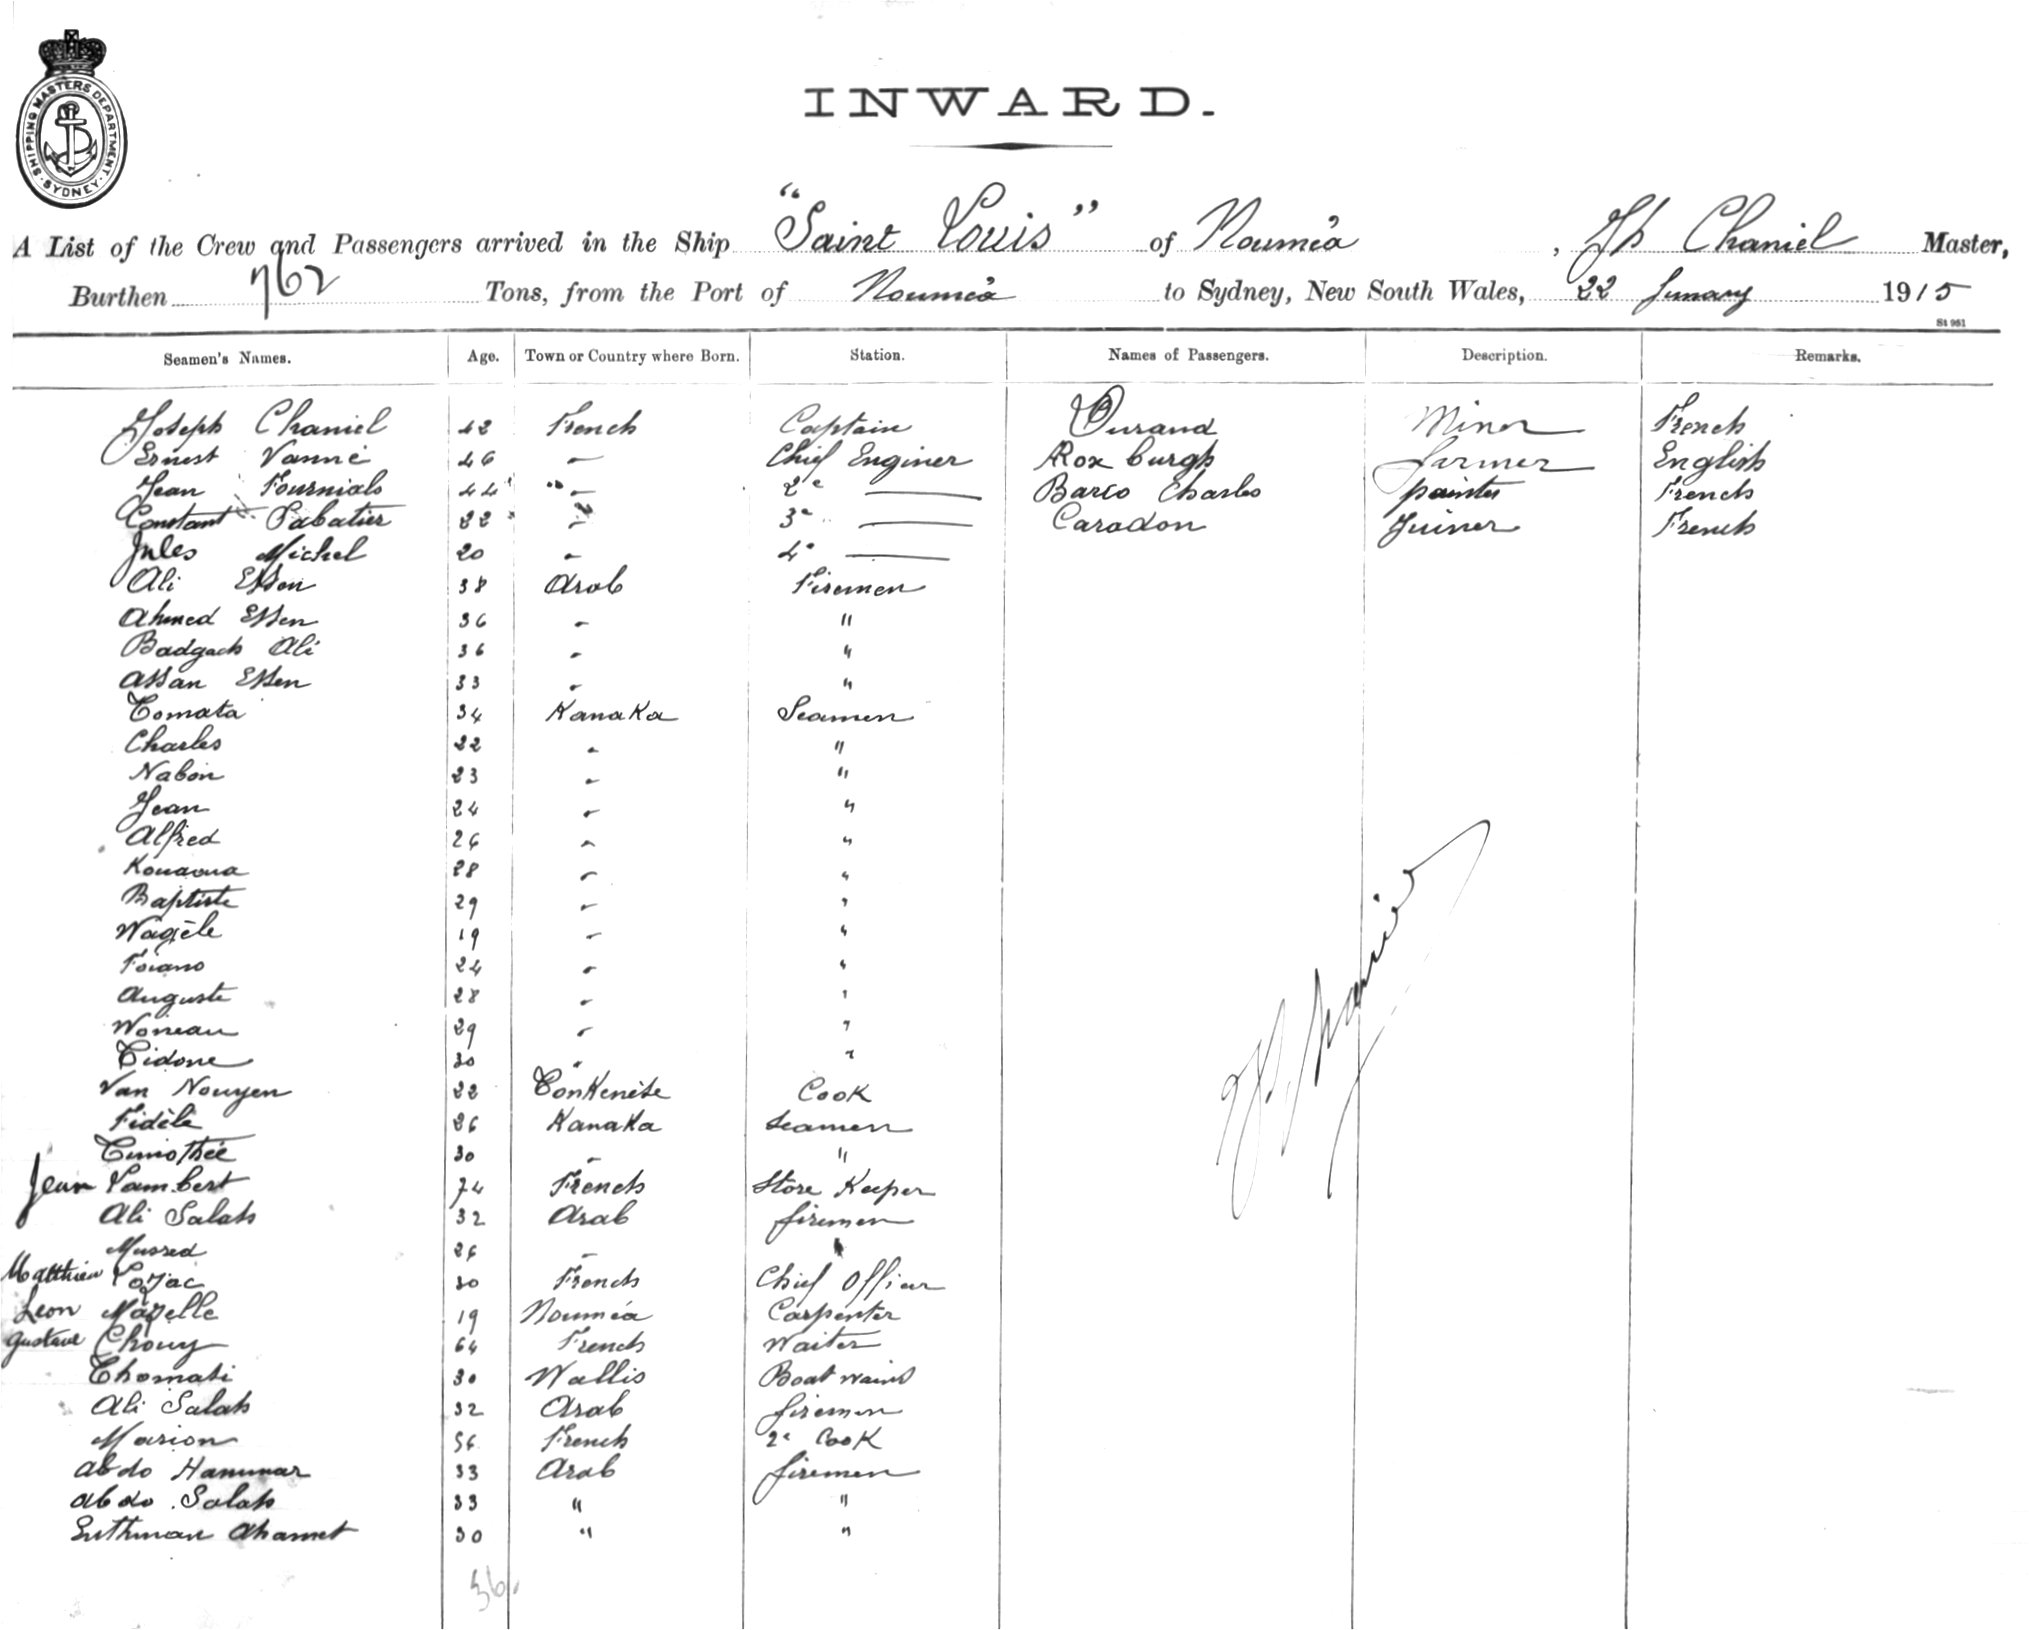 SHIPPING MASTERS DEPARTMENT. SYDNEY.
INWARD.
A List of the Crew and Passengers arrived in the Ship "Saint Louis" of Nouméa, Jh Chaniel Master,
Burthen 762 Tons, from the Port of Nouméa to Sydney, New South Wales, 22 January 1915
St 961
Seamen's Names. Age. Town or Country where Born. Station. Names of Passengers. Description. Remarks.
Joseph Chaniel 42 French Captain Durand Miner French
Ernest Vanné 46 - Chief Enginer Roxburgh farmer English
Jean Fournials 44 " - 2e — Barco Charles painter French
Constant Sabatier 22 - 3e — Caradon Juiner French
Jules Michel 20 - 4e —
Ali Essen 38 Arab Firemen
Ahmed Essen 36 - "
Badgach Ali 36 - "
Assan Essen 33 - "
Tomata 34 Kanaka Seamen
Charles 22 - "
Nabon 23 - "
Jean 24 - "
Alfred 26 - "
Kouaoua 28 - "
Baptiste 29 - "
Wagèle 19 - "
Foiano 24 - "
Auguste 28 - "
Woneau 29 - "
Tidone 30 " "
Van Nouyen 22 Tonkenese Cook
Fidèle 26 Kanaka Seamen
Timothée 30 - "
Jean Lambert 74 French Store Keeper
Ali Salah 32 Arab firemen
Mussed 26 - "
Matthieu Cozac 30 French Chief Officer
Leon Mazelle 19 Nouméa Carpenter
Gustave Chouy 64 French Waiter
Thomasi 30 Wallis Boat wains
Ali Salah 32 Arab firemen
Marion 56 French 2e Cook
Abdo Hammar 33 Arab firemen
Abdo Salah 33 " "
Suthman Ahamet 30 " "
36